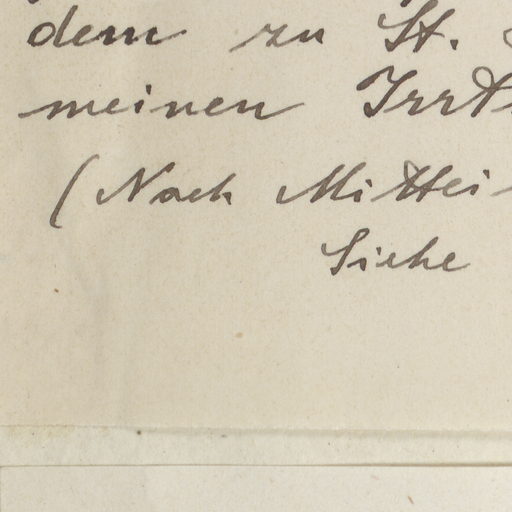 dem zu St.
meinen Irrt
(Nach Mittei-
Siehe